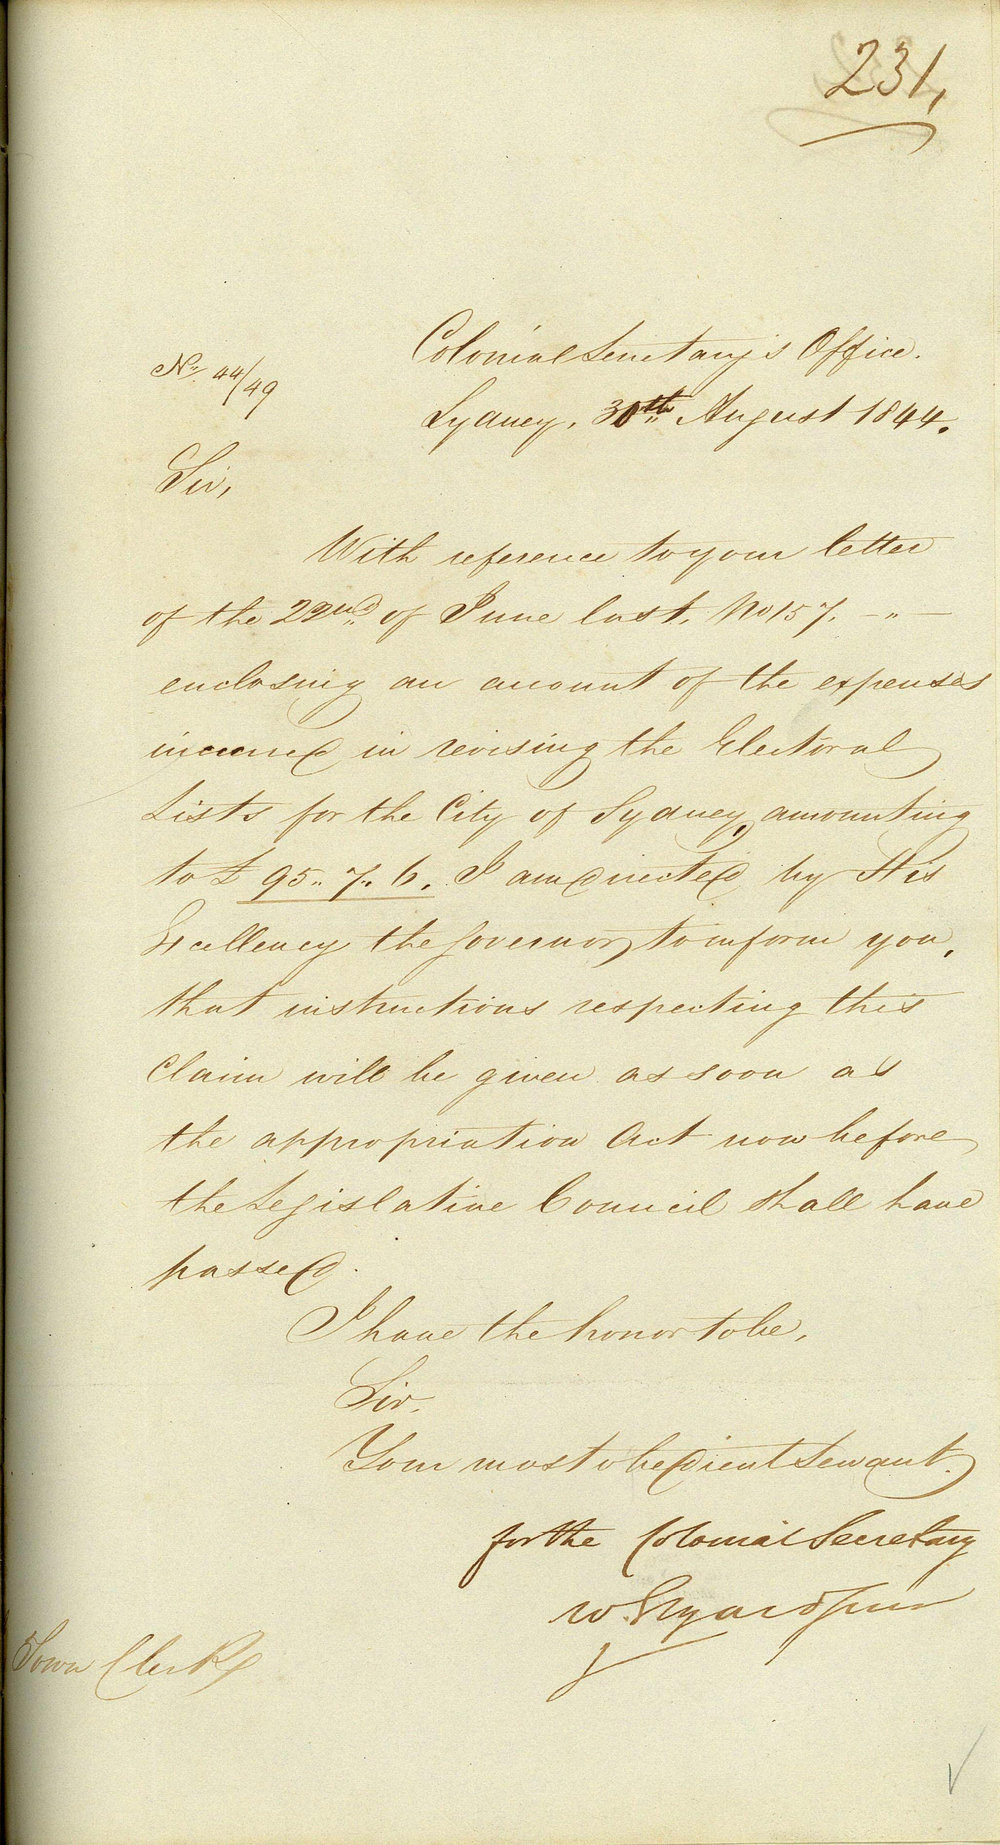 231,
Colonial Secretary's Office.
No. 44/49
Sydney, 30th August 1844.
Sir,
With reference to your letter
of the 22nd of June last, No 157. — „ —
enclosing an account of the expenses
incurred in revising the Electoral
Lists for the City of Sydney, amounting
to £ 95 „ 7 „ 6. I am directed by His
Excellency the Governor to inform you,
that instructions respecting this
Claim will be given as soon as
the appropriation Act now before
the Legislative Council shall have
passed.
I have the honor to be,
Sir,
Your most obedient Servant.
for the Colonial Secretary
W. Elyard Junr
Town Clerk